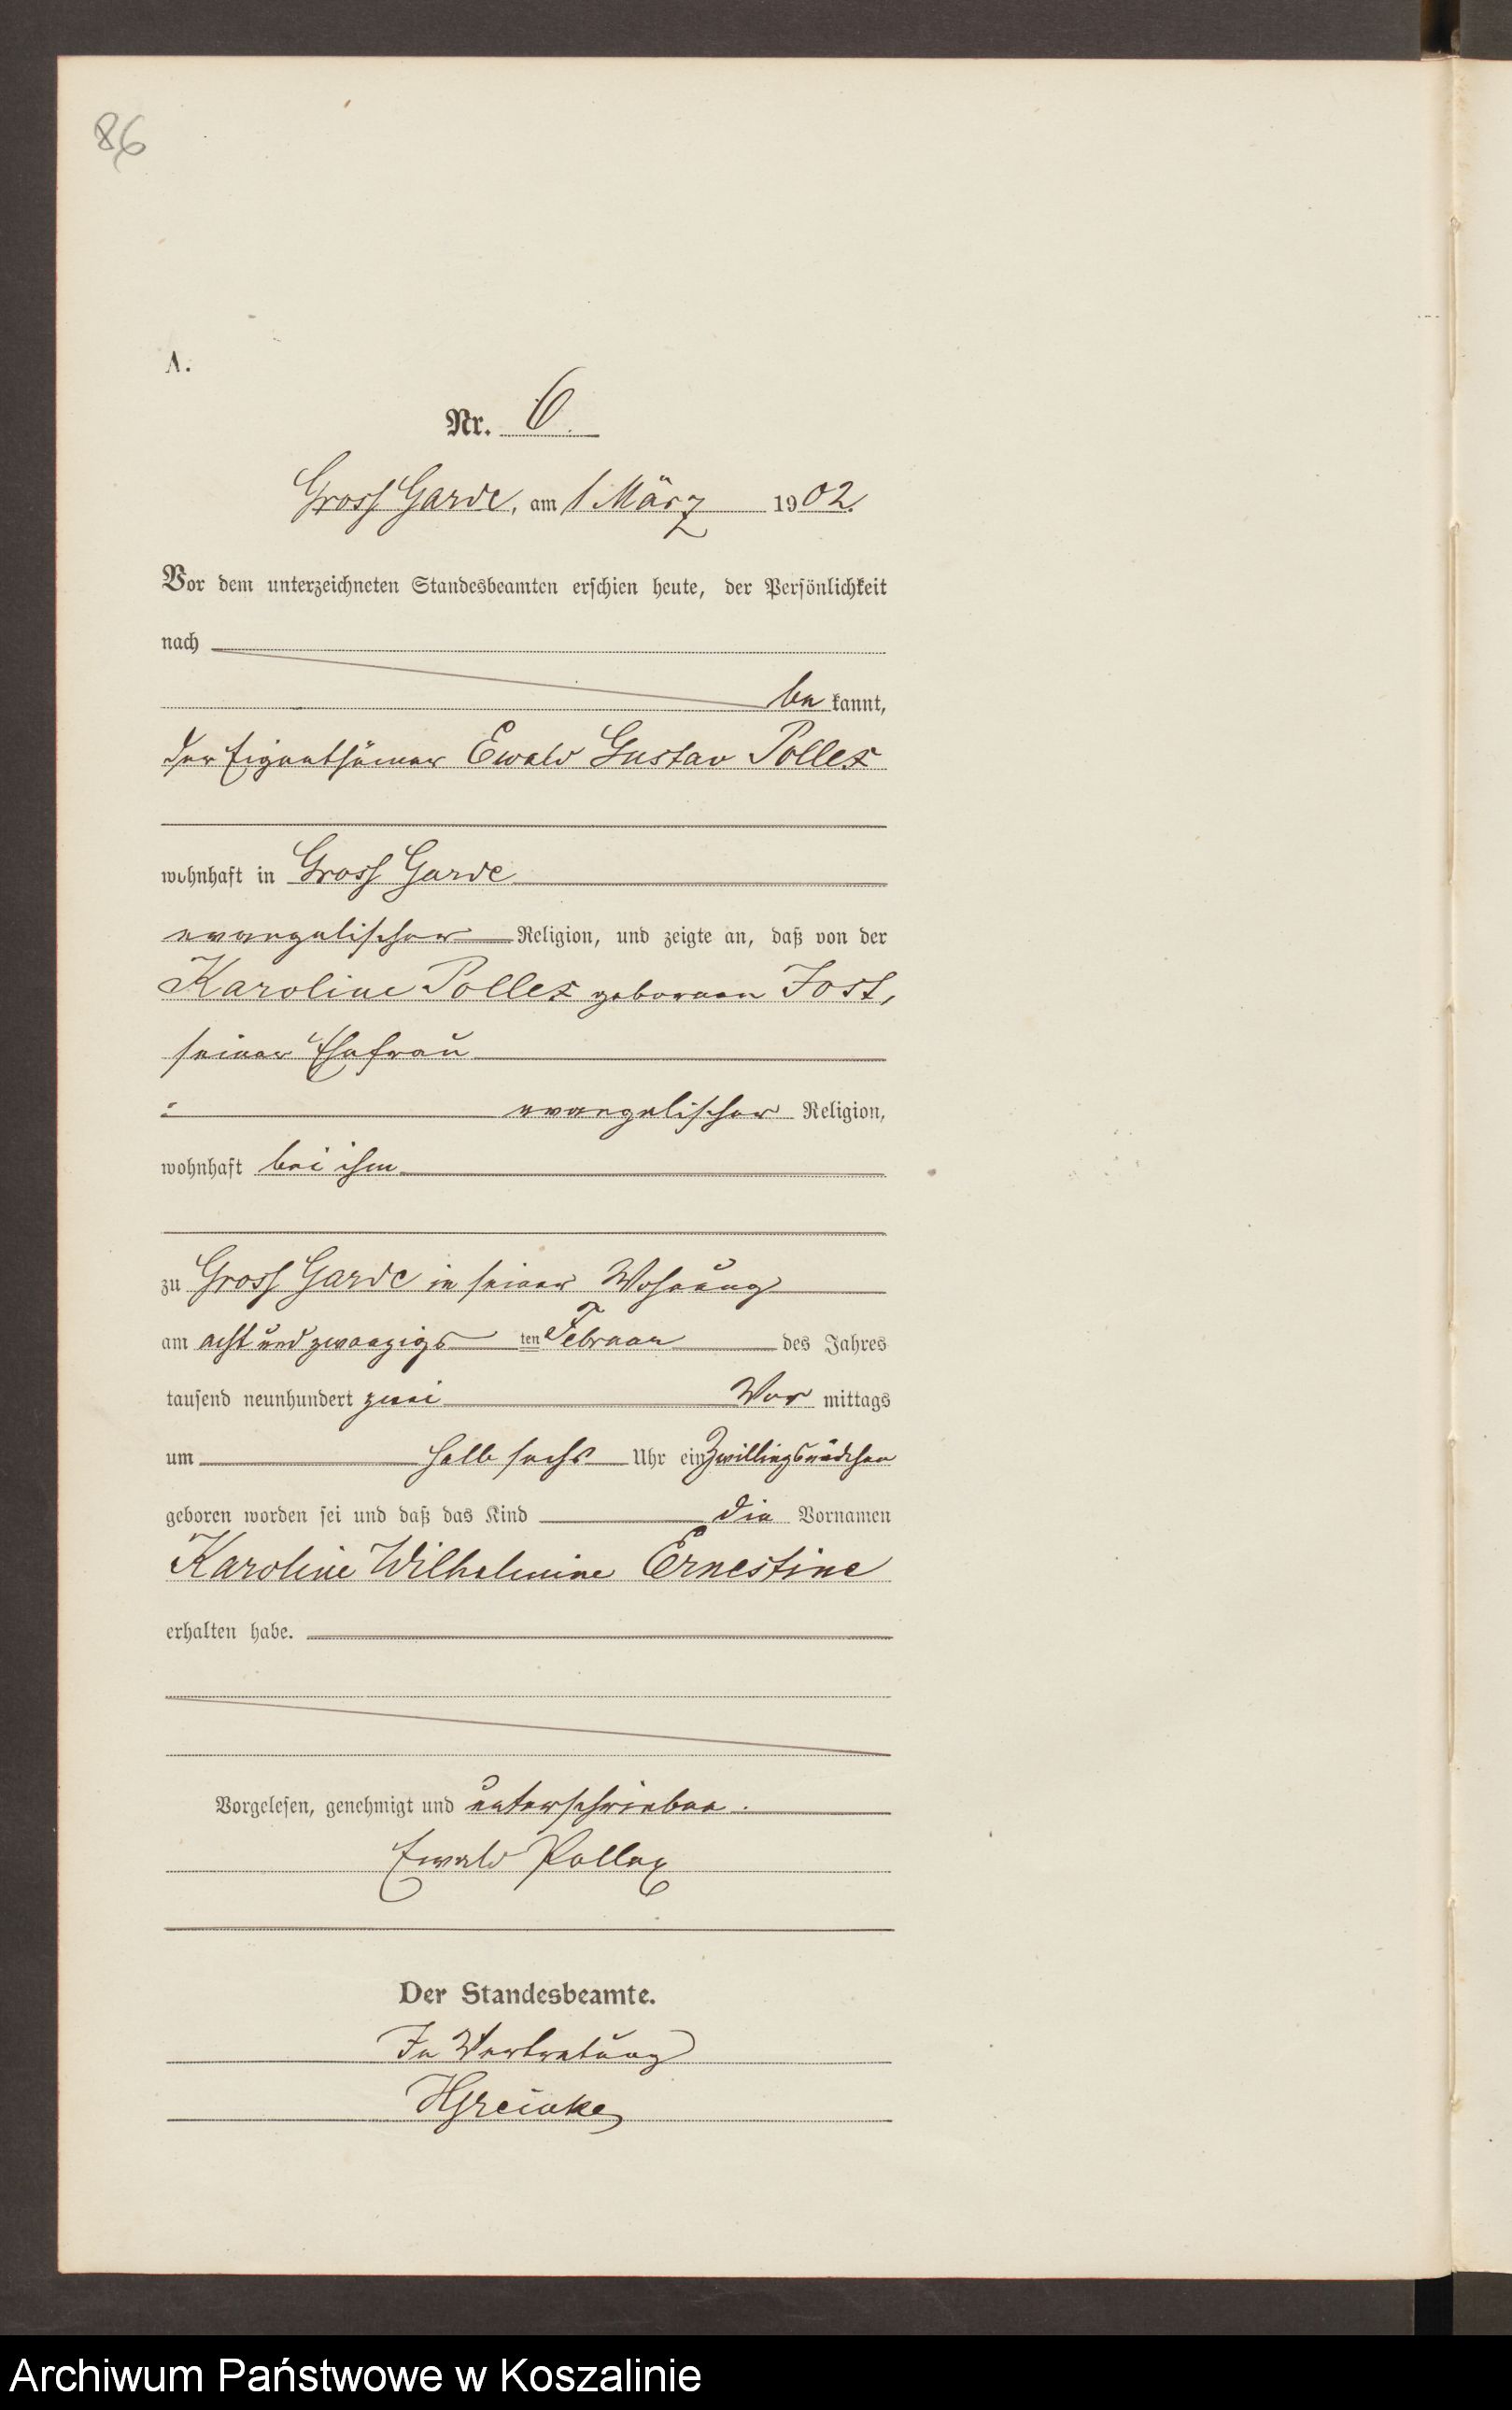 86
A.
Nr. 6.
Gross Garde, am 1 März 1902.
Vor dem unterzeichneten Standesbeamten erschien heute, der Persönlichkeit
nach
be kannt,
der Eigenthümer Ewald Gustav Pollex
wohnhaft in Gross Garde
evangelischer Religion, und zeigte an, daß von der
Karoline Pollex geborenen Jost,
seiner Ehefrau
evangelischer Religion,
wohnhaft bei ihm
zu Gross Garde in seiner Wohnung
am acht und zwanzigs ten Februar des Jahres
tausend neunhundert zwei Vor mittags
um halb sechs Uhr ein Zwillingsmädchen
geboren worden sei und daß das Kind die Vornamen
Karoline Wilhelmine Ernestine
erhalten habe.
Vorgelesen, genehmigt und unterschrieben.
Ewald Pollex
Der Standesbeamte.
In Vertretung
Archiwum Państwowe w Koszalinie